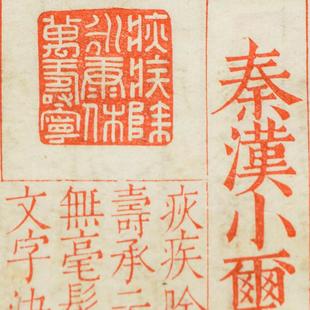 秦漢小璽
疢疾除
永康休
萬壽寧
疢疾除
壽承二
無毫髮
文字